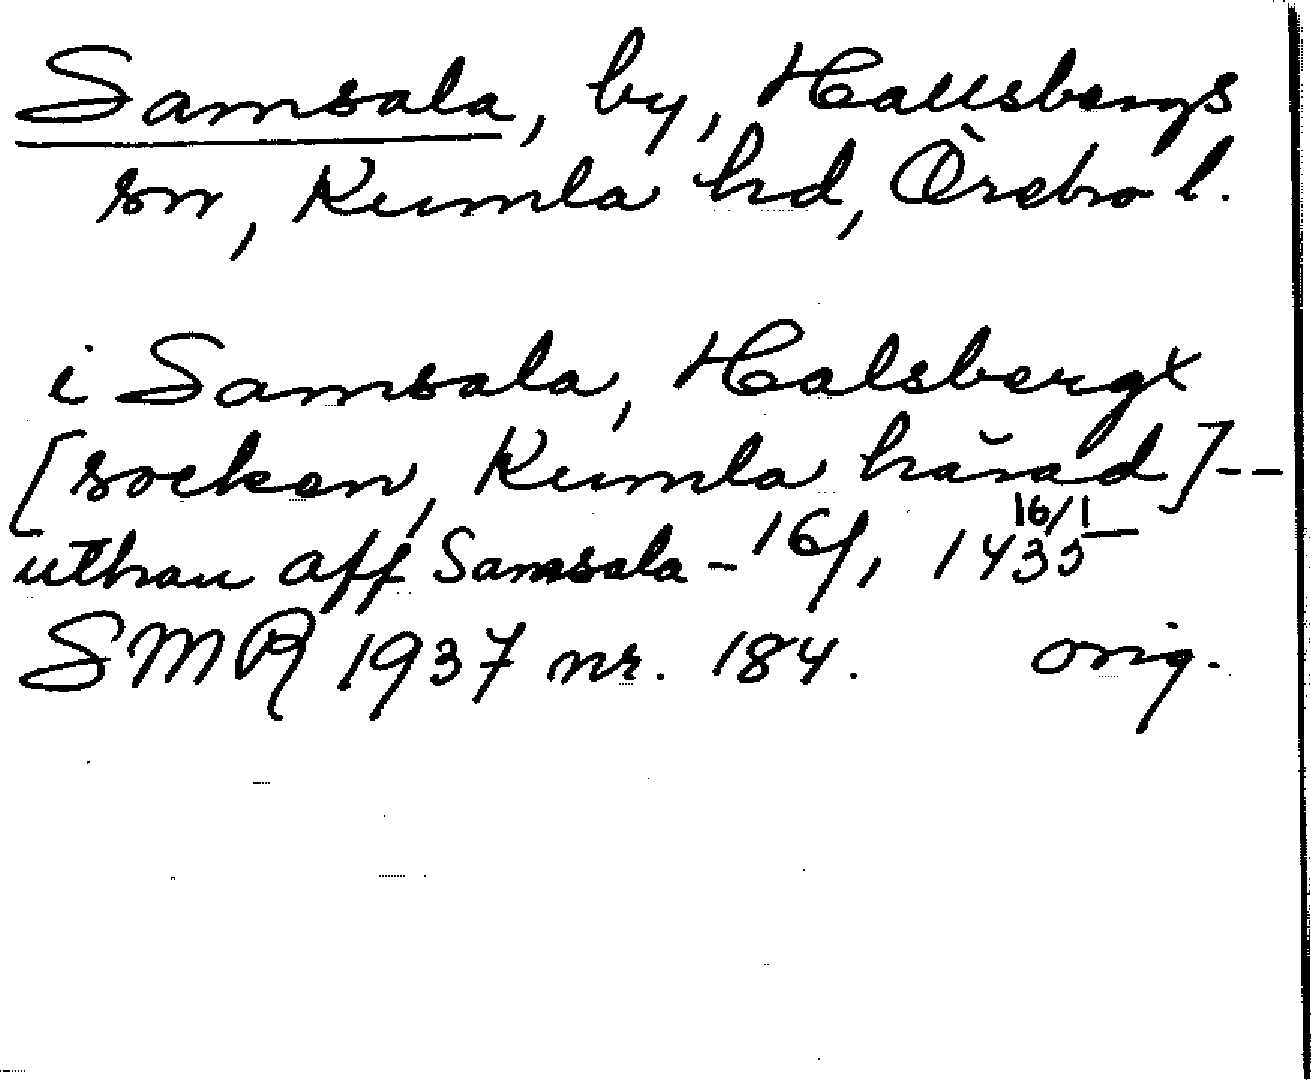 Samsala, by, Hallsbergs
sn, Kumla hd, Örebro l.
i Samsala, Halsbergx
[socken, Kumla härad] --
uthan aff Samsala - 16/1 1435
16/1
SMR 1937 nr. 184. orig.